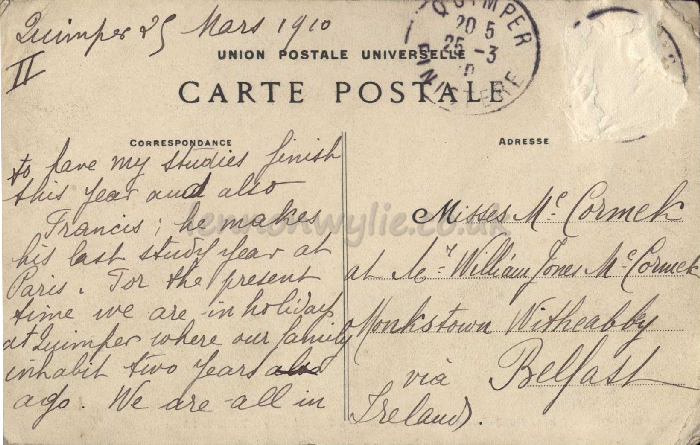 Quimper 25 Mars 1910
II
QUIMPER
20 5
25 -3
FINISTERE
UNION POSTALE UNIVERSELLE
CARTE POSTALE
CORRESPONDANCE
to have my studies finish
this year and also
Francis; he makes
his last study year at
Paris. For the present
time we are in holiday
at Quimper where our family
inhabit two years also
ago. We are all in
ADRESSE
Misses Mc Cormek
at Mr William Jones Mc Cormek
Monkstown Witheabby
via Belfast
Ireland.
lennonwylie.co.uk